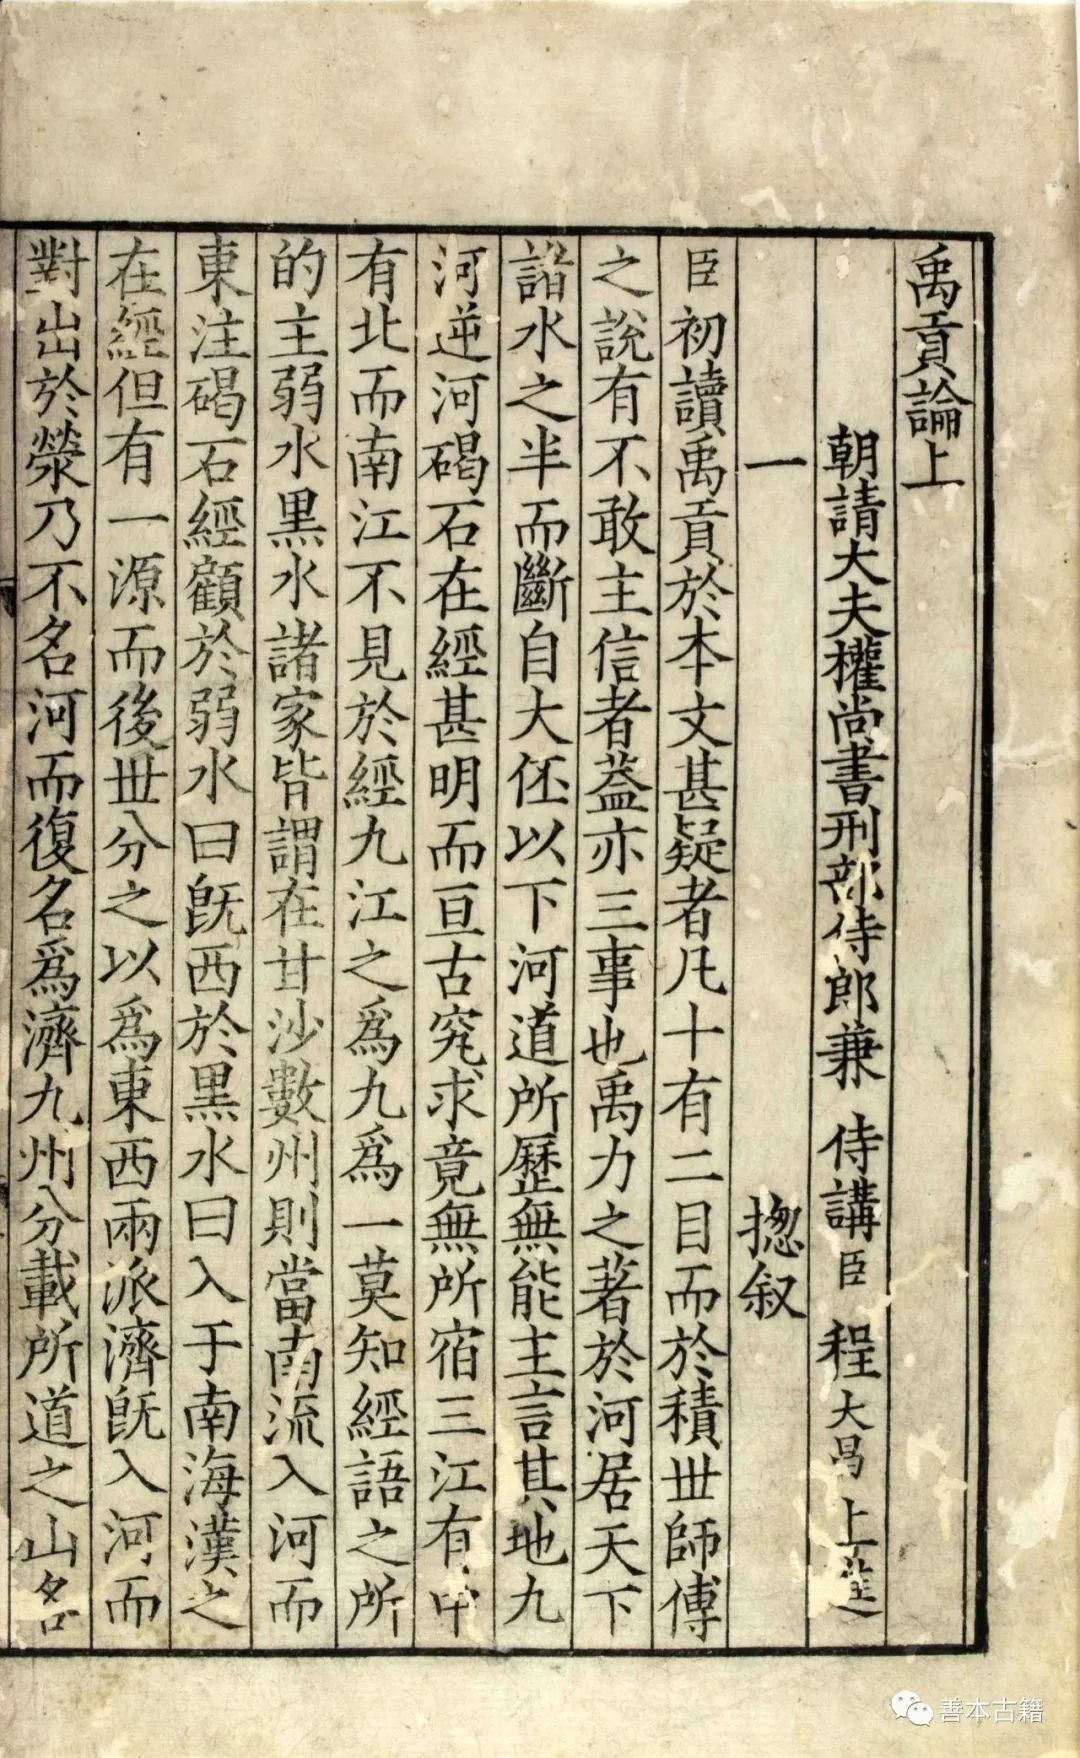 禹貢論上
朝請大夫權尚書刑部侍郎兼　侍講臣程大昌上進
一　揔叙
臣初讀禹貢於本文甚疑者凡十有二目而於積丗師傅
之說有不敢主信者葢亦三事也禹力之著於河居天下
諸水之半而斷自大伾以下河道所歷無能主言其地九
河逆河碣石在經甚明而亘古究求竟無所宿三江有中
有北而南江不見於經九江之爲九爲一莫知經語之所
的主弱水黒水諸家皆謂在甘沙數州則當南流入河而
東注碣石經顧於弱水曰旣西於黒水曰入于南海漢之
在經但有一源而後丗分之以爲東西兩派濟旣入河而
對出於滎乃不名河而復名爲濟九州分載所道之山名
善本古籍